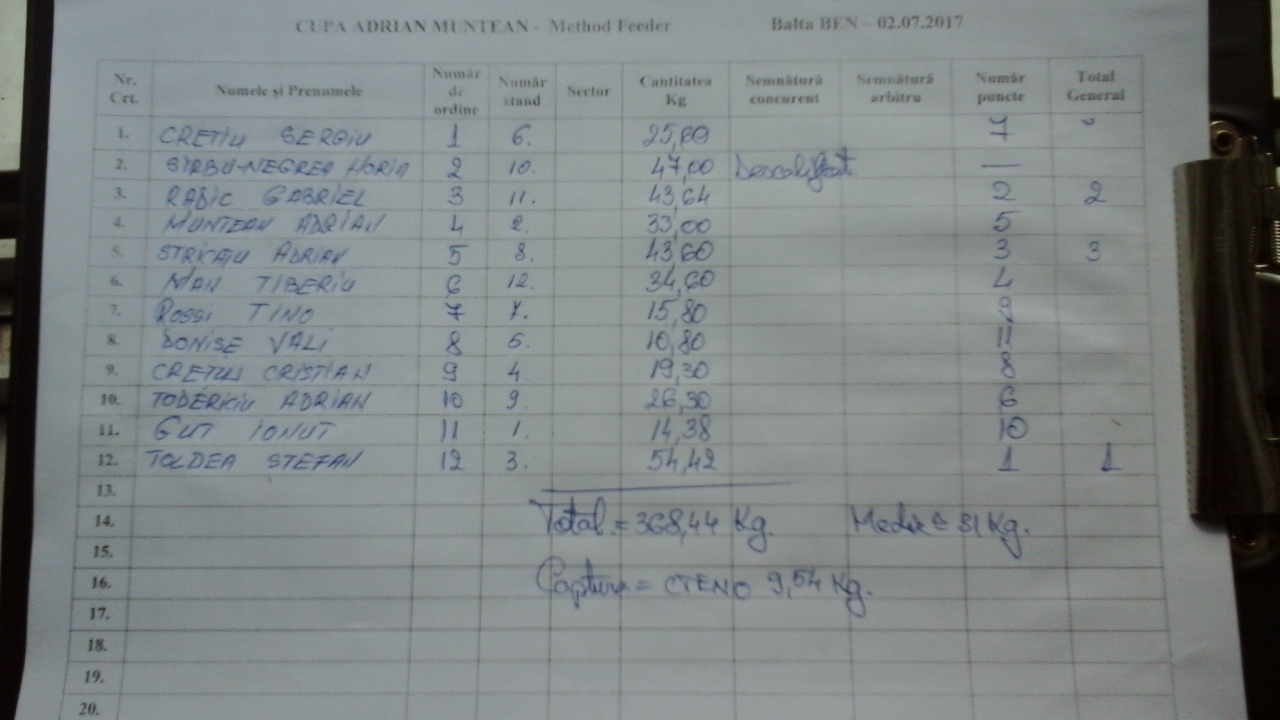 CUPA ADRIAN MUNTEAN - Method Feeder Balta BEN – 02.07.2017
Nr. Crt. Numele și Prenumele Număr de ordine Număr stand Sector Cantitatea Kg Semnătură concurent Semnătură arbitru Număr puncte Total General
1. CRETIU SERGIU 1 6. 25,60 7
2. SIRBU-NEGREA HORIA 2 10. 47,00 Descalificat —
3. RADIC GABRIEL 3 11. 43,64 2 2
4. MUNTEAN ADRIAN 4 2. 33,00 5
5. ADRIAN 5 8. 43,60 3 3
6. MAN TIBERIU 6 12. 34,60 4
7. ROSSI TINO 7 7. 15,80 9
8. DONISE VALI 8 5. 10,80 11
9. CRETUL CRISTIAN 9 4. 19,30 8
10. TODERICIU ADRIAN 10 9. 26,30 6
11. GUT IONUT 11 1. 14,38 10
12. TOLDEA STEFAN 12 3. 54,42 1 1
13.
14. Total = 368,44 Kg. Media = 31 Kg.
15.
16. Captura = CTENO 9,54 Kg.
17.
18.
19.
20.